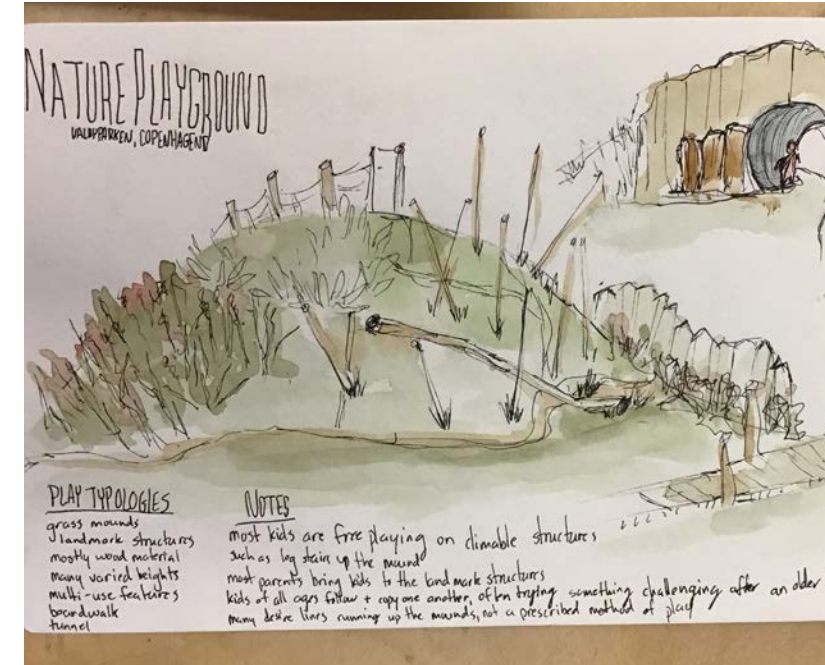 NATURE PLAYGROUND
VALBYPARKEN, COPENHAGEN
PLAY TYPOLOGIES
grass mounds
landmark structures
mostly wood material
many varied heights
multi-use features
boardwalk
tunnel
NOTES
most kids are free playing on climable structures
such as log stairs up the mound
most parents bring kids to the landmark structures
kids of all ages follow + copy one another, often trying something challenging after an older
many desire lines running up the mounds, not a prescribed method of play